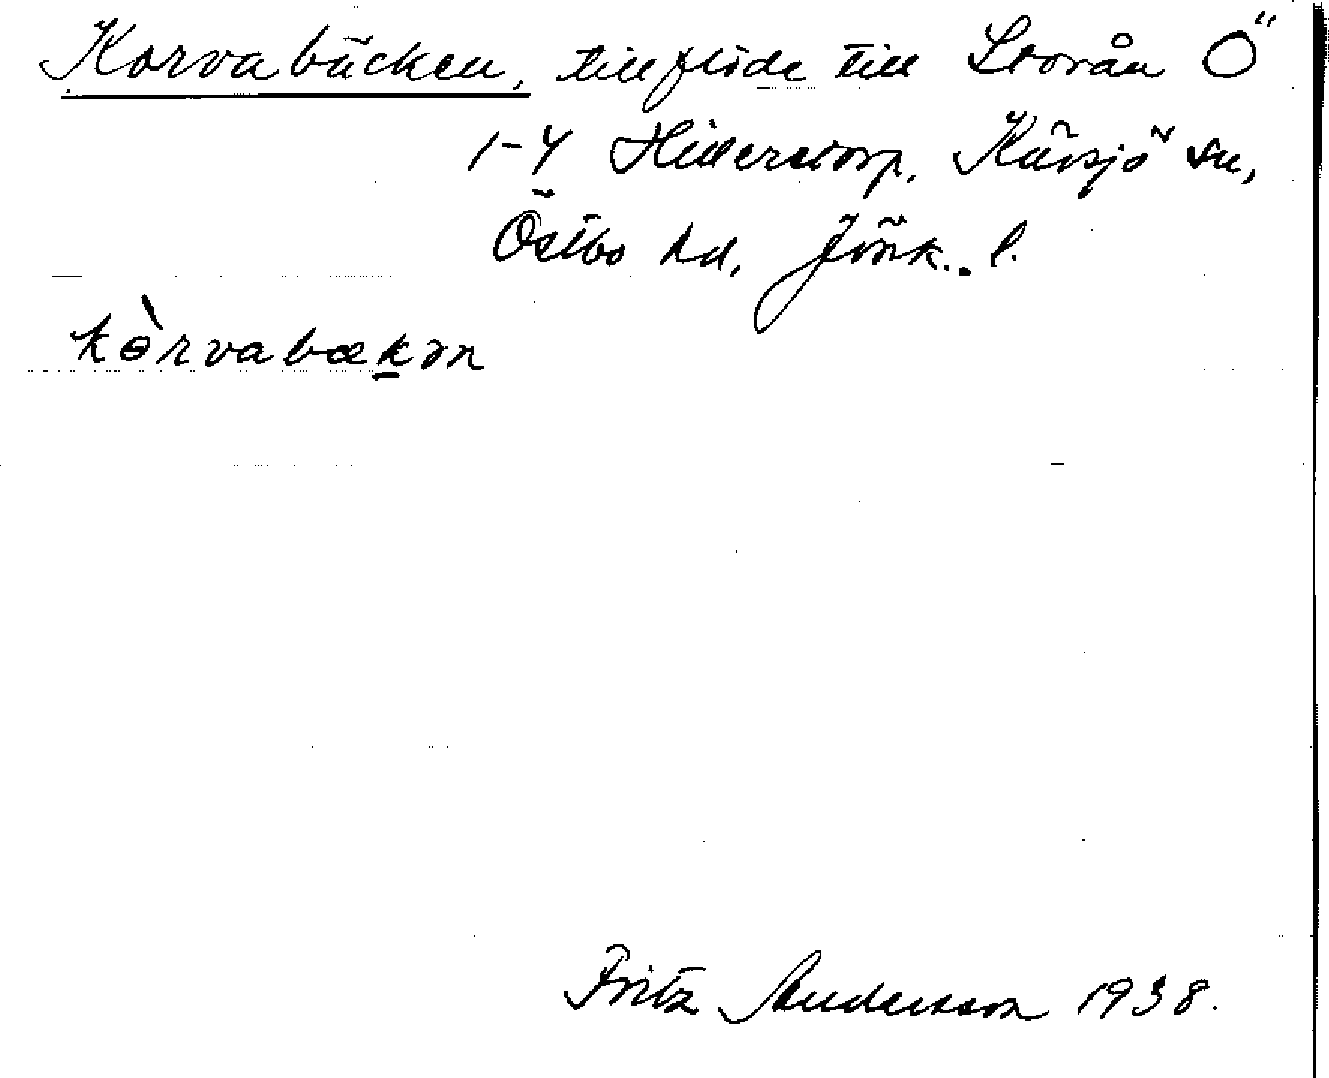 Korvabäcken, tillflöde till Storån Ö
1-4 Hillerstorp, Kävsjö sn,
Östbo hd, Jönk. l.
kɵ̀rvabækən
Fritz Andersson 1938.